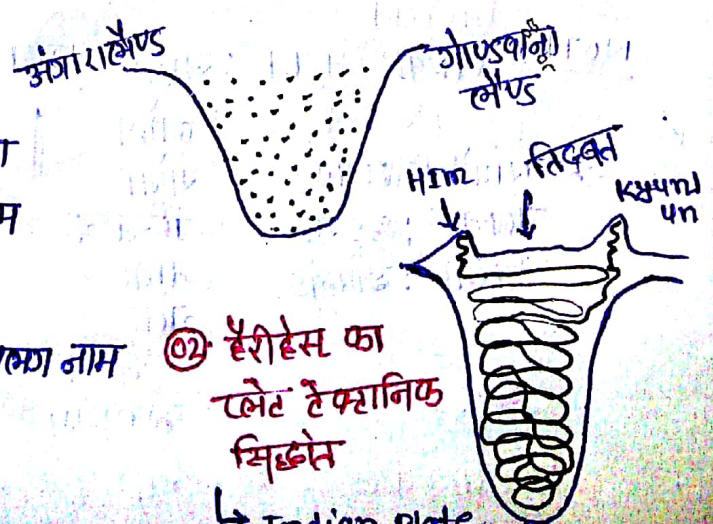 अंगारालैण्ड
गोण्डवाना
लैण्ड
Him
तिब्बत
म
लग नाम
02 हैरीहेस का
प्लेट टेक्टानिक
सिद्धांत
↳ Indian Plate